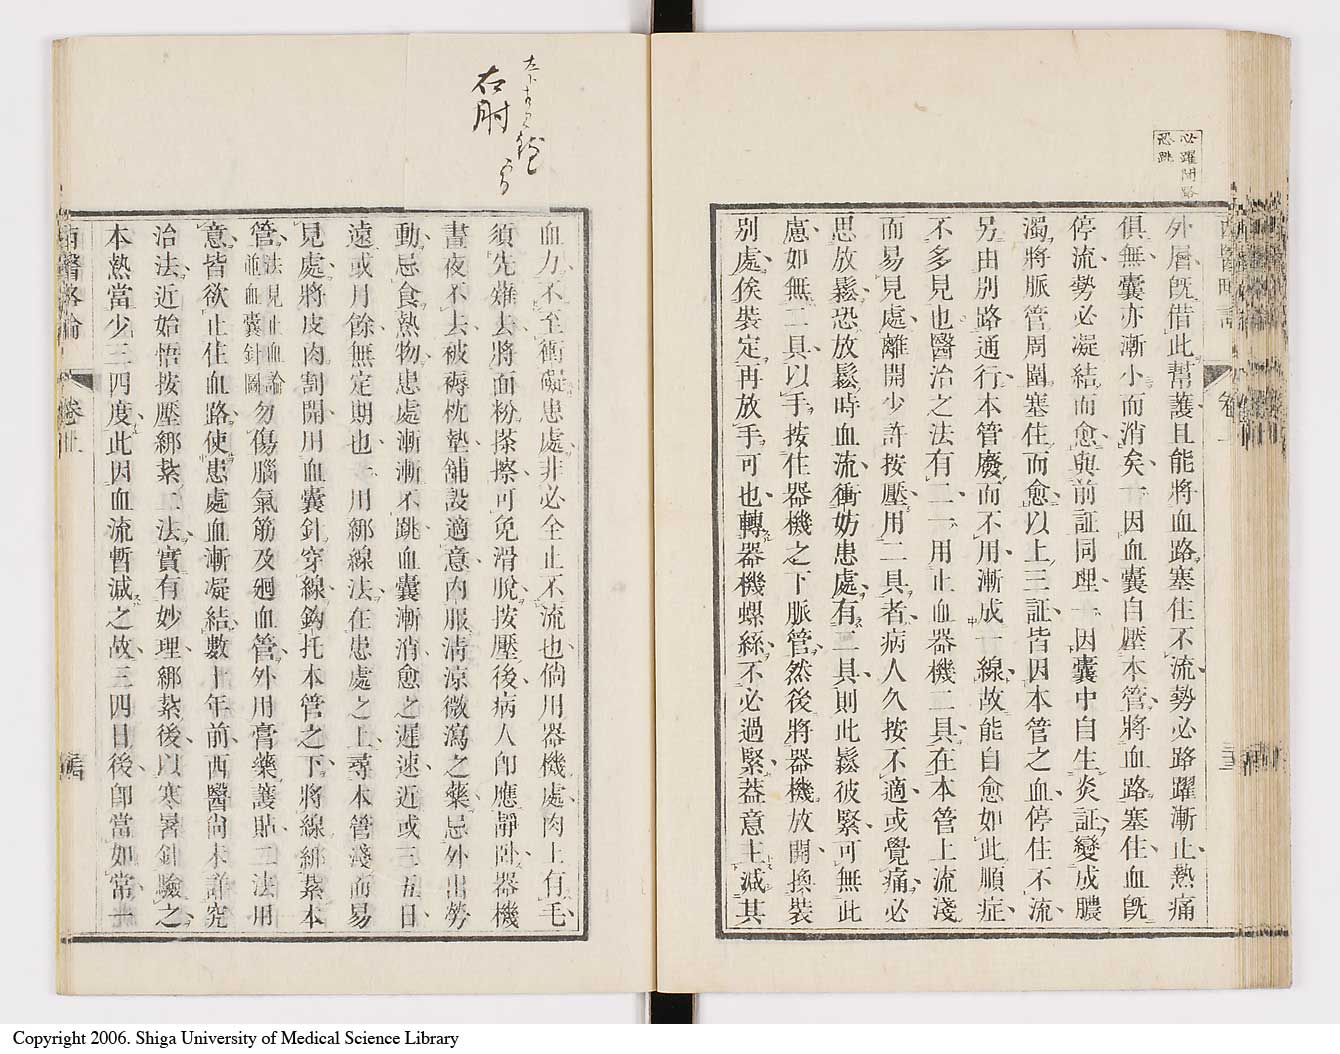 必躍間路
恐跳
外層既借此幫護且能將血路塞住不流勢必路躍漸止熱痛
俱無囊亦漸小而消矣一因血囊自壓本管將血路塞住血既
停流勢必凝結而愈與前証同理一因囊中自生炎証變成膿
濁將脈管周圍塞住而愈以上三証皆因本管之血停住不流
另由別路通行本管廢而不用漸成一線故能自愈如此順症
不多見也醫治之法有二一用止血器機二具在本管上流淺
而易見處離開少許按壓用二具者病人久按不適或覺痛必
思放鬆恐放鬆時血流衝妨患處有二具則此鬆彼緊可無此
慮如無二具以手按住器機之下脈管然後將器機放開換裝
別處俟裝定再放手可也轉器機螺絲不必過緊葢意主減其
右肘
血力不至衝礙患處非必全止不流也倘用器機處肉上有毛
須先薙去將面粉搽擦可免滑脫按壓後病人卽應靜臥器機
晝夜不去被褥枕墊舖設適意內服淸涼微瀉之藥忌外出勞
動忌食熱物患處漸漸不跳血囊漸消愈之遲速近或三五日
遠或月餘無定期也一用綁線法在患處之上尋本管淺而易
見處將皮肉割開用血囊針穿線鈎托本管之下將線綁紮本
管法見止血論並血囊針圖勿傷腦氣筋及廻血管外用膏藥護貼二法用
意皆欲止住血路使患處血漸凝結數十年前西醫尙未詳究
治法近始悟按壓綁紮二法實有妙理綁紮後以寒暑針驗之
本熱當少三四度此因血流暫減之故三四日後卽當如常一
西醫略論
卷中
Copyright 2006. Shiga University of Medical Science Library